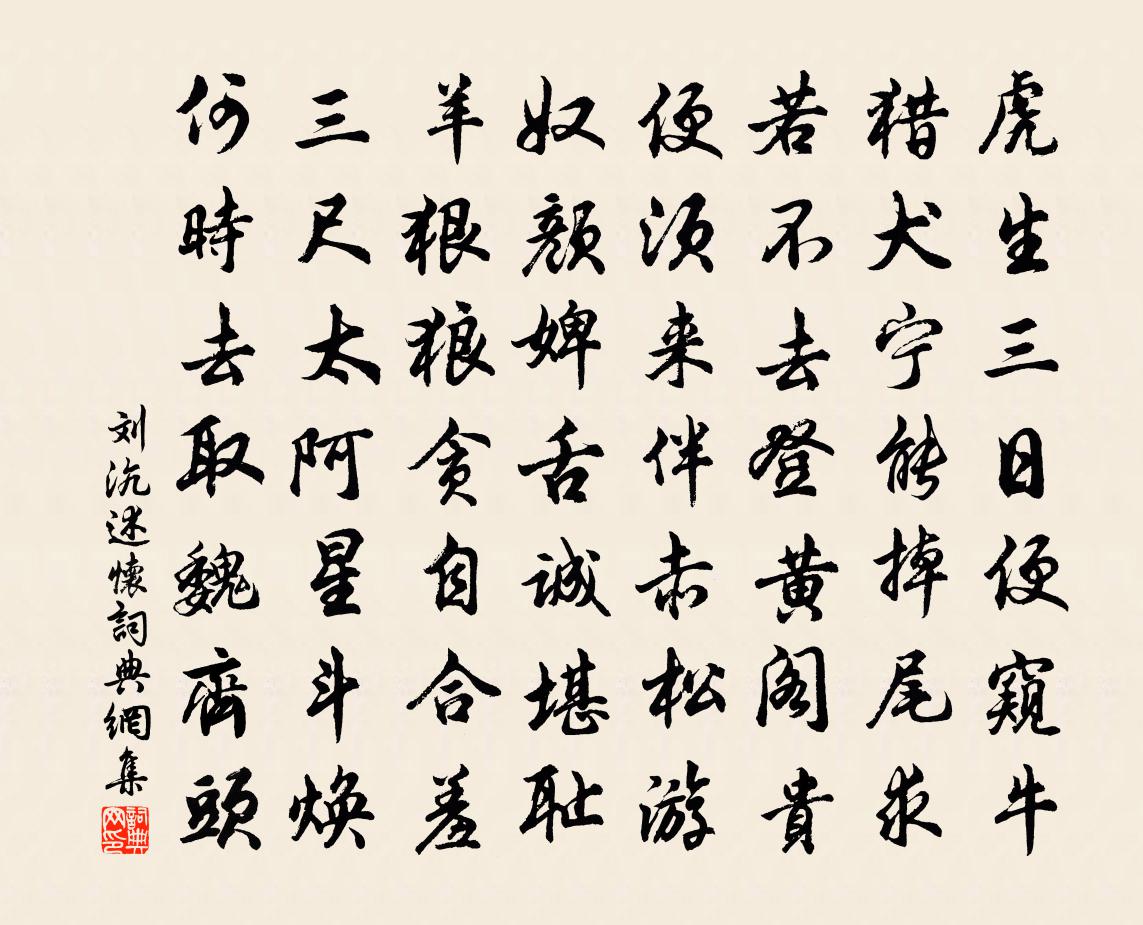 虎生三日便窺牛
猎犬宁能掉尾求
若不去登黄阁貴
便须来伴赤松游
奴颜婢舌誠堪耻
羊狠狼贪自合羞
三尺太阿星斗焕
何時去取魏齊頭
刘沆述懷詞典網集
詞典网印